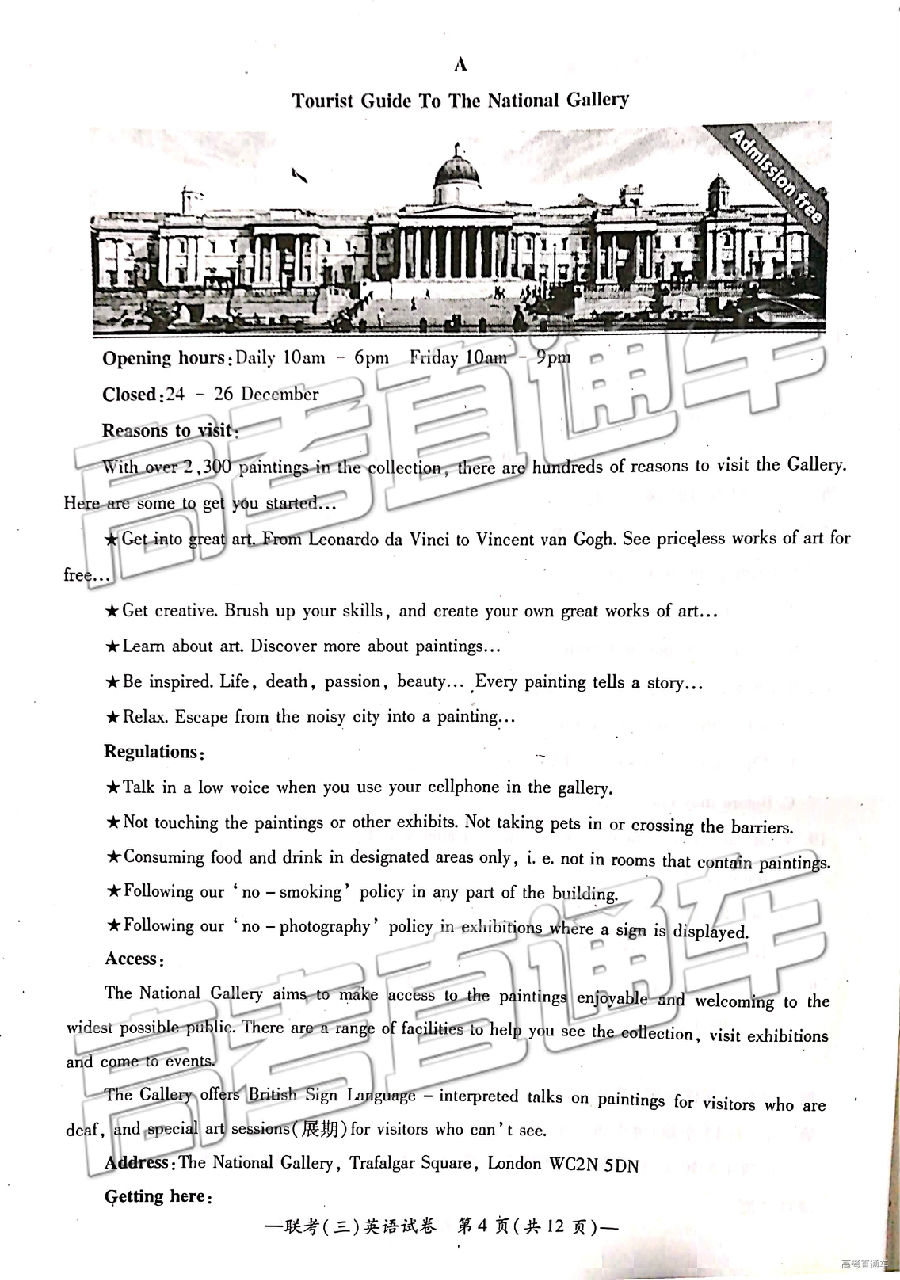 A
Tourist Guide To The National Gallery
Admission free
Opening hours:Daily 10am - 6pm Friday 10am - 9pm
Closed:24 - 26 December
Reasons to visit:
With over 2,300 paintings in the collection, there are hundreds of reasons to visit the Gallery.
Here are some to get you started...
★Get into great art. From Leonardo da Vinci to Vincent van Gogh. See priceless works of art for
free...
★Get creative. Brush up your skills, and create your own great works of art...
★Learn about art. Discover more about paintings...
★Be inspired. Life, death, passion, beauty... Every painting tells a story...
★Relax. Escape from the noisy city into a painting...
Regulations:
★Talk in a low voice when you use your cellphone in the gallery.
★Not touching the paintings or other exhibits. Not taking pets in or crossing the barriers.
★Consuming food and drink in designated areas only, i. e. not in rooms that contain paintings.
★Following our 'no-smoking' policy in any part of the building.
★Following our 'no-photography' policy in exhibitions where a sign is displayed.
Access:
The National Gallery aims to make access to the paintings enjoyable and welcoming to the
widest possible public. There are a range of facilities to help you see the collection, visit exhibitions
and come to events.
The Gallery offers British Sign Language-interpreted talks on paintings for visitors who are
deaf, and special art sessions(展期)for visitors who can't see.
Address:The National Gallery, Trafalgar Square, London WC2N 5DN
Getting here:
—联考(三)英语试卷 第4页(共12页)—
高考直通车
高考直通车
高考直通车